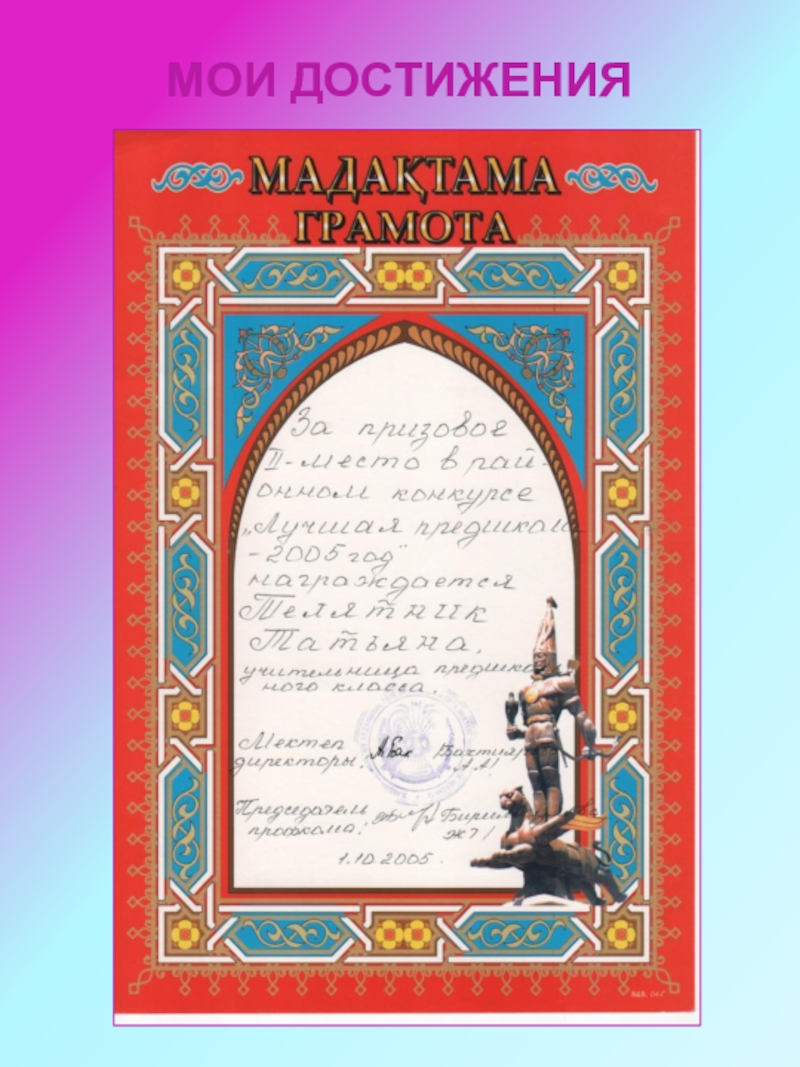 МОИ ДОСТИЖЕНИЯ
МАДАҚТАМА
ГРАМОТА
За призовое
II-место в рай-
онном конкурсе
„Лучшая предшколь
-2005 год"
награждается
Телятник
Татьяна,
учительница предшколь
ного класса.
Мектеп
директоры:
А.А./
Председатель
профкома:
Ж7/
1.10.2005.